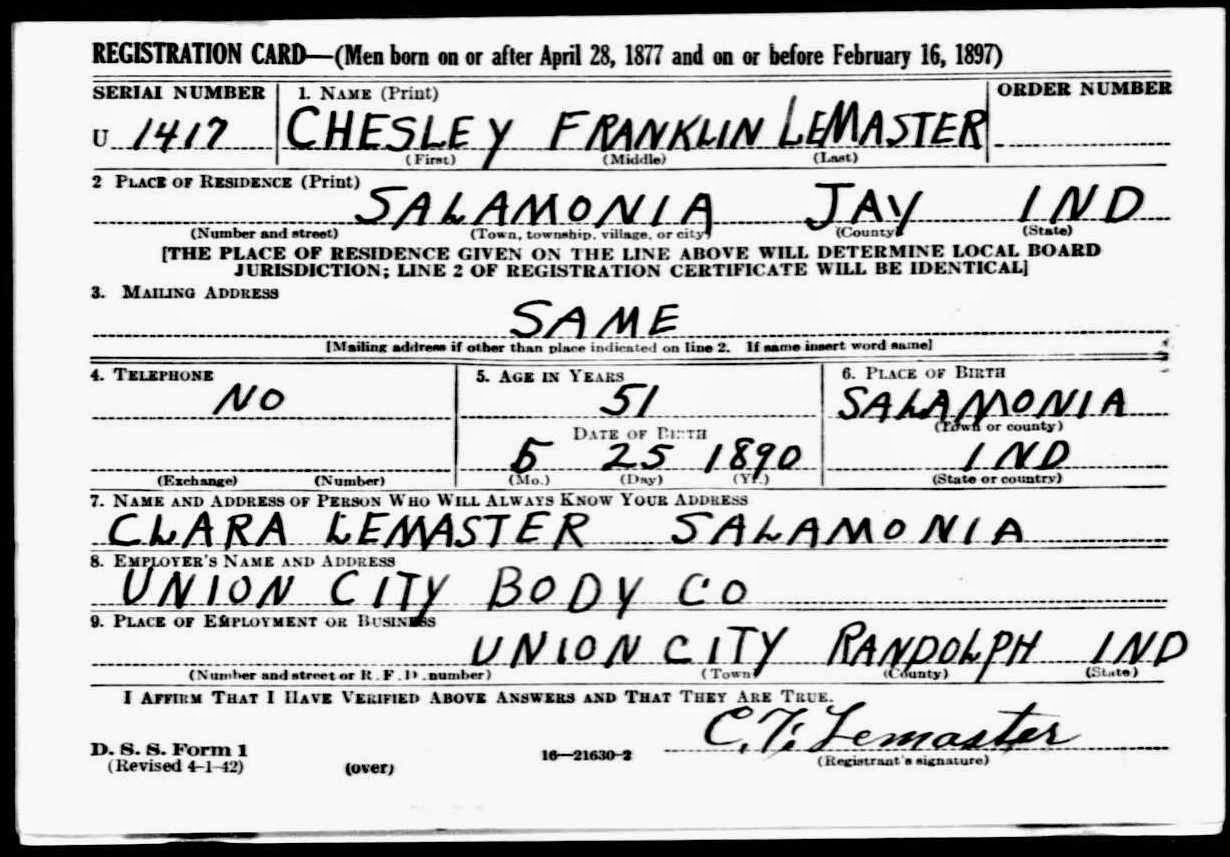 REGISTRATION CARD—(Men born on or after April 28, 1877 and on or before February 16, 1897)
SERIAL NUMBER 1. NAME (Print) ORDER NUMBER
U 1417 CHESLEY FRANKLIN LEMASTER
(First) (Middle) (Last)
2 PLACE OF RESIDENCE (Print)
SALAMONIA JAY IND
(Number and street) (Town, township, village, or city) (County) (State)
[THE PLACE OF RESIDENCE GIVEN ON THE LINE ABOVE WILL DETERMINE LOCAL BOARD
JURISDICTION; LINE 2 OF REGISTRATION CERTIFICATE WILL BE IDENTICAL]
3. MAILING ADDRESS
SAME
[Mailing address if other than place indicated on line 2. If same insert word same]
4. TELEPHONE 5. AGE IN YEARS 6. PLACE OF BIRTH
NO 51 SALAMONIA
(Town or county)
DATE OF BIRTH
5 25 1890 IND
(Exchange) (Number) (Mo.) (Day) (Yr.) (State or country)
7. NAME AND ADDRESS OF PERSON WHO WILL ALWAYS KNOW YOUR ADDRESS
CLARA LEMASTER SALAMONIA
8. EMPLOYER'S NAME AND ADDRESS
UNION CITY BODY CO
9. PLACE OF EMPLOYMENT OR BUSINESS
UNION CITY RANDOLPH IND
(Number and street or R. F. D. number) (Town) (County) (State)
I AFFIRM THAT I HAVE VERIFIED ABOVE ANSWERS AND THAT THEY ARE TRUE.
C. F. Lemaster
D. S. S. Form 1
(Revised 4-1-42) (over) 16—21630-2 (Registrant's signature)